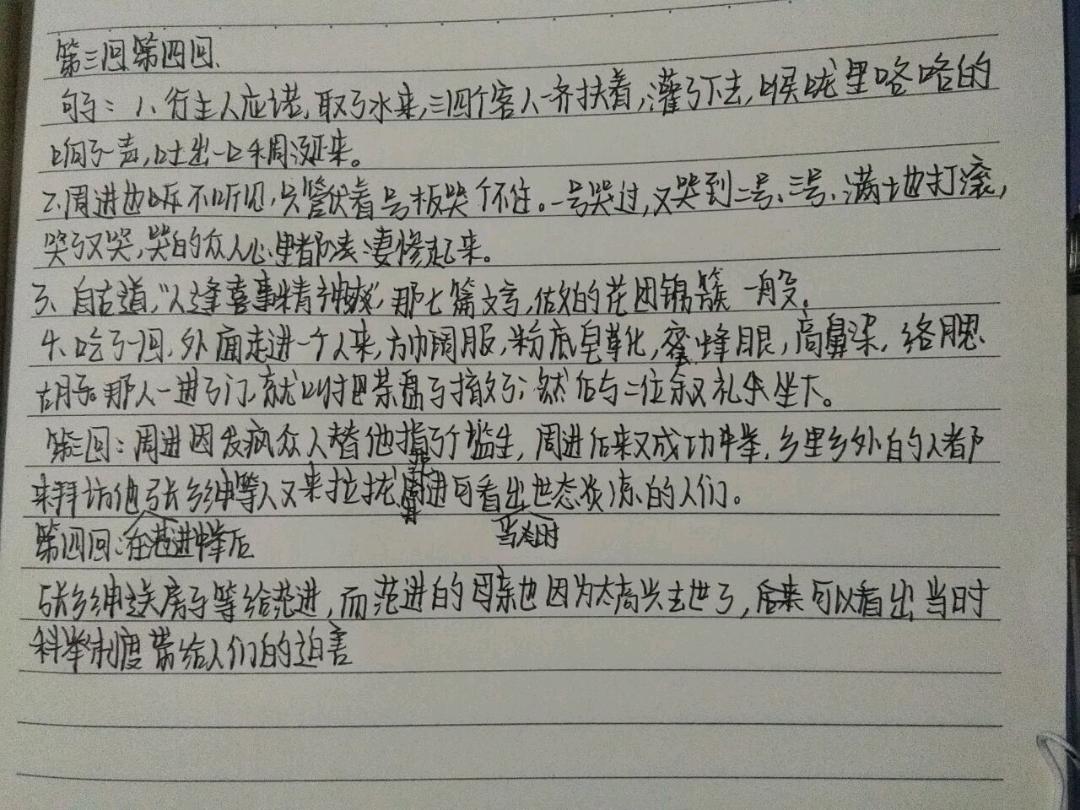 第三回第四回
句子：1、行主人应诺，取了水来，三四个客人一齐扶着，灌了下去，喉咙里咯咯的
响了一声，吐出一口稠涎来。
2、周进也听不听见，只管伏着号板哭个不住。一号哭过，又哭到二号、三号、满地打滚，
哭了又哭，哭的众人心里都凄惨起来。
3、自古道，“人逢喜事精神爽”，那七篇文字，做的花团锦簇一般。
4、吃了一回，外面走进一个人来，方巾阔服，粉底皂靴，蜜蜂眼，高鼻梁，络腮
胡子。那人一进了门，就叫把茶盘子撤了；然后与二位叙礼坐下。
第三回：周进因发疯众人替他捐了个监生，周进后来又成功中举，乡里乡外的人都
来拜访他张乡绅等人又来拉拢范进可看出世态炎凉的人们。
第四回：在范进中举后
当时
张乡绅送房子等给范进，而范进的母亲也因为太高兴去世了，可以看出当时
科举制度带给人们的迫害